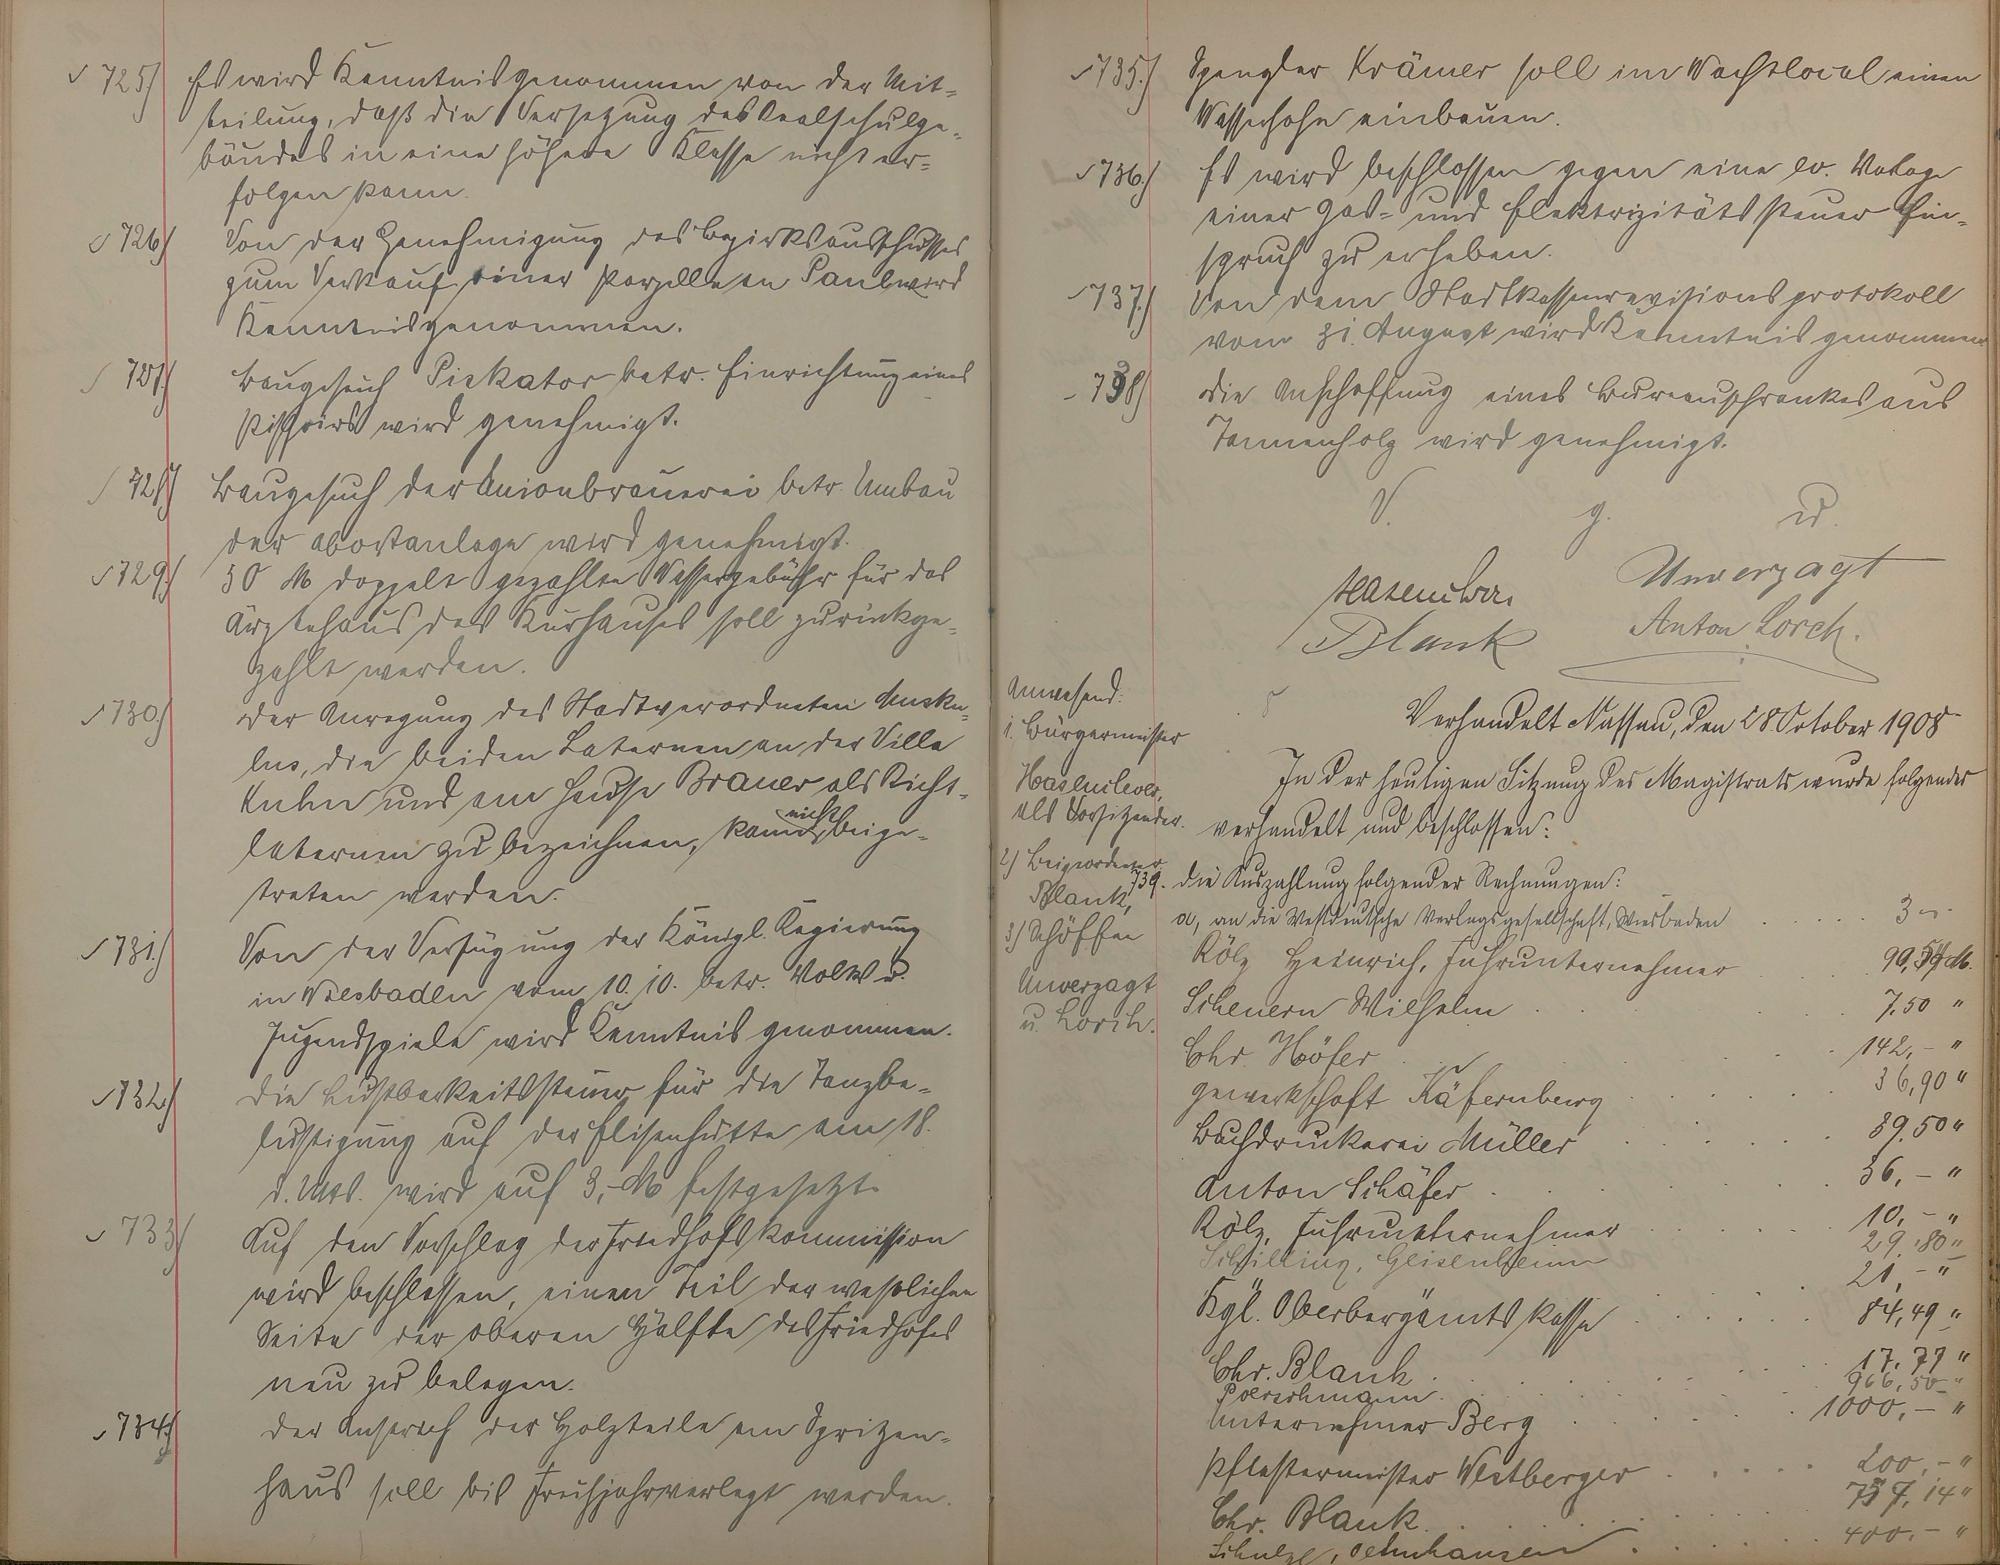 725) Es wird Kenntnis genommen von der Mit-
teilung, daß die Versetzung des Realschulge-
bäudes in eine höhere Klasse nicht er-
folgen kann.
726) Von der Genehmigung des Bezirksausschusses
zum Verkauf einer Parzelle an Paul wird
Kenntnis genommen.
727) Baugesuch Piskator betr. Einrichtung eines
Pissoirs wird genehmigt.
728) Baugesuch der Unionbrauerei betr. Umbau
der Abortanlage wird genehmigt.
729) 30 M doppelt gezahlte Wassergebühr für das
Ärztehaus des Kurhauses soll zurückge-
zahlt werden.
730) Der Anregung des Stadtverordneten Musku-
lus, die beiden Laternen an der Villa
Kuhn und am Hause Brauer als Richt-
laternen zu bezeichnen, kann nicht beige-
treten werden.
731) Von der Verfügung der Königl. Regierung
in Wiesbaden vom 10.10. betr. Volks u.
Jugendspiele wird Kenntnis genommen.
732) Die Lustbarkeitssteuer für die Tanzbe-
lustigung auf der Elisenhütte am 18.
d. Mts. wird auf 3,- M festgesetzt.
733) Auf den Vorschlag der Friedhofskommission
wird beschlossen, einen Teil der westlichen
Seite der oberen Hälfte des Friedhofes
neu zu belegen.
734) Der Anstrich der Holzteile am Spritzen-
haus soll bis Frühjahr verlegt werden.
735.) Spengler Krämer soll im Wachtlocal einen
Wasserhahn einbauen.
736.) Es wird beschlossen gegen eine ev. Vorlage
einer Gas- und Elektrizitätssteuer Ein-
spruch zu erheben.
737.) Von dem Stadtkassenrevisionsprotokoll
vom 31. August wird Kenntnis genommen
738) Die Anschaffung eines Bureauschrankes aus
Tannenholz wird genehmigt.
V. g. u.
Hasenclever Unverzagt
Blank Anton Lorch.
Anwesend:
1. Bürgermeister
Hasenclever,
als Vorsitzender.
2) Beigeordneter
Blank,
3) Schöffen
Unverzagt
u. Lorch.
Verhandelt Nassau, den 28 October 1908
In der heutigen Sitzung des Magistrats wurde folgendes
verhandelt und beschlossen:
739. Die Auszahlung folgender Rechnungen:
a, an die Westdeutsche Verlagsgesellschaft, Wiesbaden 3 -
Rölz Heinrich, Fuhrunternehmer 90,54 M.
Scheuern Wilhelm 7.50 "
Chr. Höfer 142,- "
Gewerkschaft Käfernberg 36,90 "
Buchdruckerei Müller 89.50 "
Anton Schäfer 36,- "
Rölz, Fuhrunternehmer 10,- "
Schilling, Geisenheim 29,80 "
21,- "
Kgl. Oberbergamtskasse 84,49 "
Chr. Blank 17.77 "
966,50 "
Unternehmer Berg 1000,- "
Pflastermeister Westberger 200,- "
Chr. Blank 757,14 "
400.- "